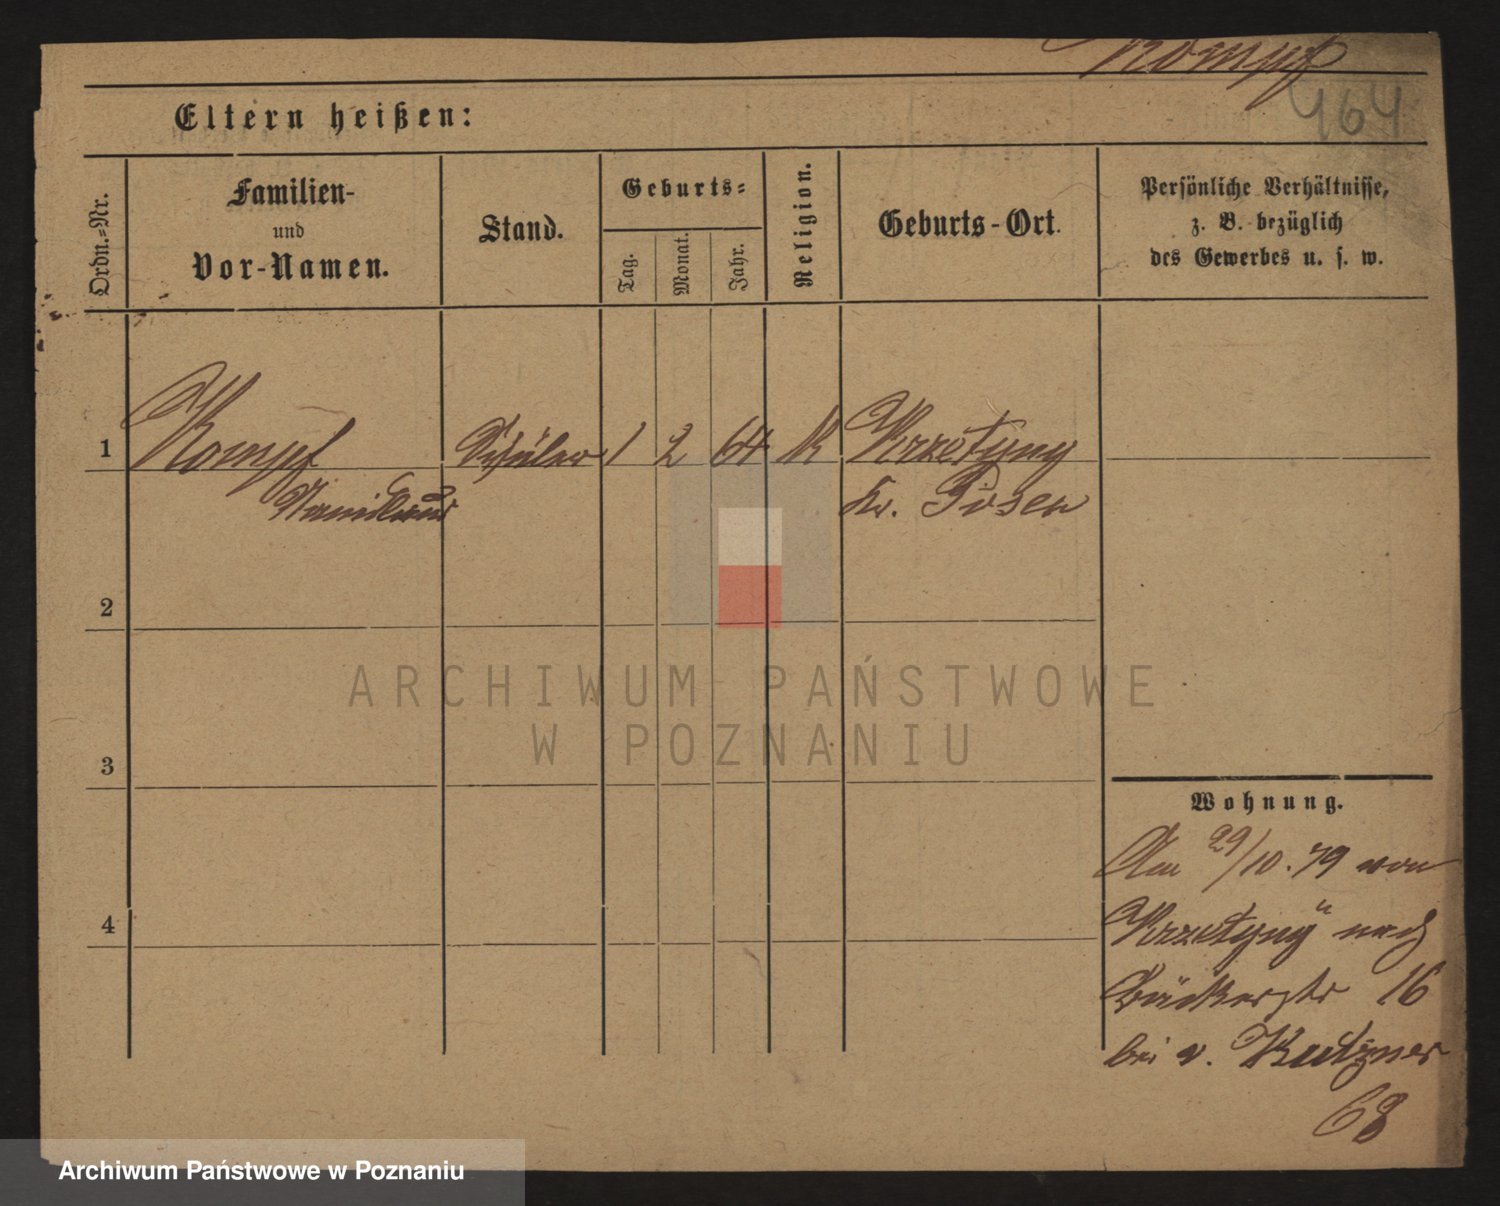 Kompf
464
Eltern heißen:
Ordn.=Nr.
Familien-
und
Vor-Namen.
Stand.
Geburts=
Tag.
Monat.
Jahr.
Religion.
Geburts-Ort.
Persönliche Verhältnisse,
z. B. bezüglich
des Gewerbes u. s. w.
1 Kompf Schüler 1 2 64 K
Kr. Posen
2
3
4
Wohnung.
Am 29/10.79 von
nach
Bäckerstr 16
bei v. Kutzner
68
ARCHIWUM PAŃSTWOWE
W POZNANIU
Archiwum Państwowe w Poznaniu